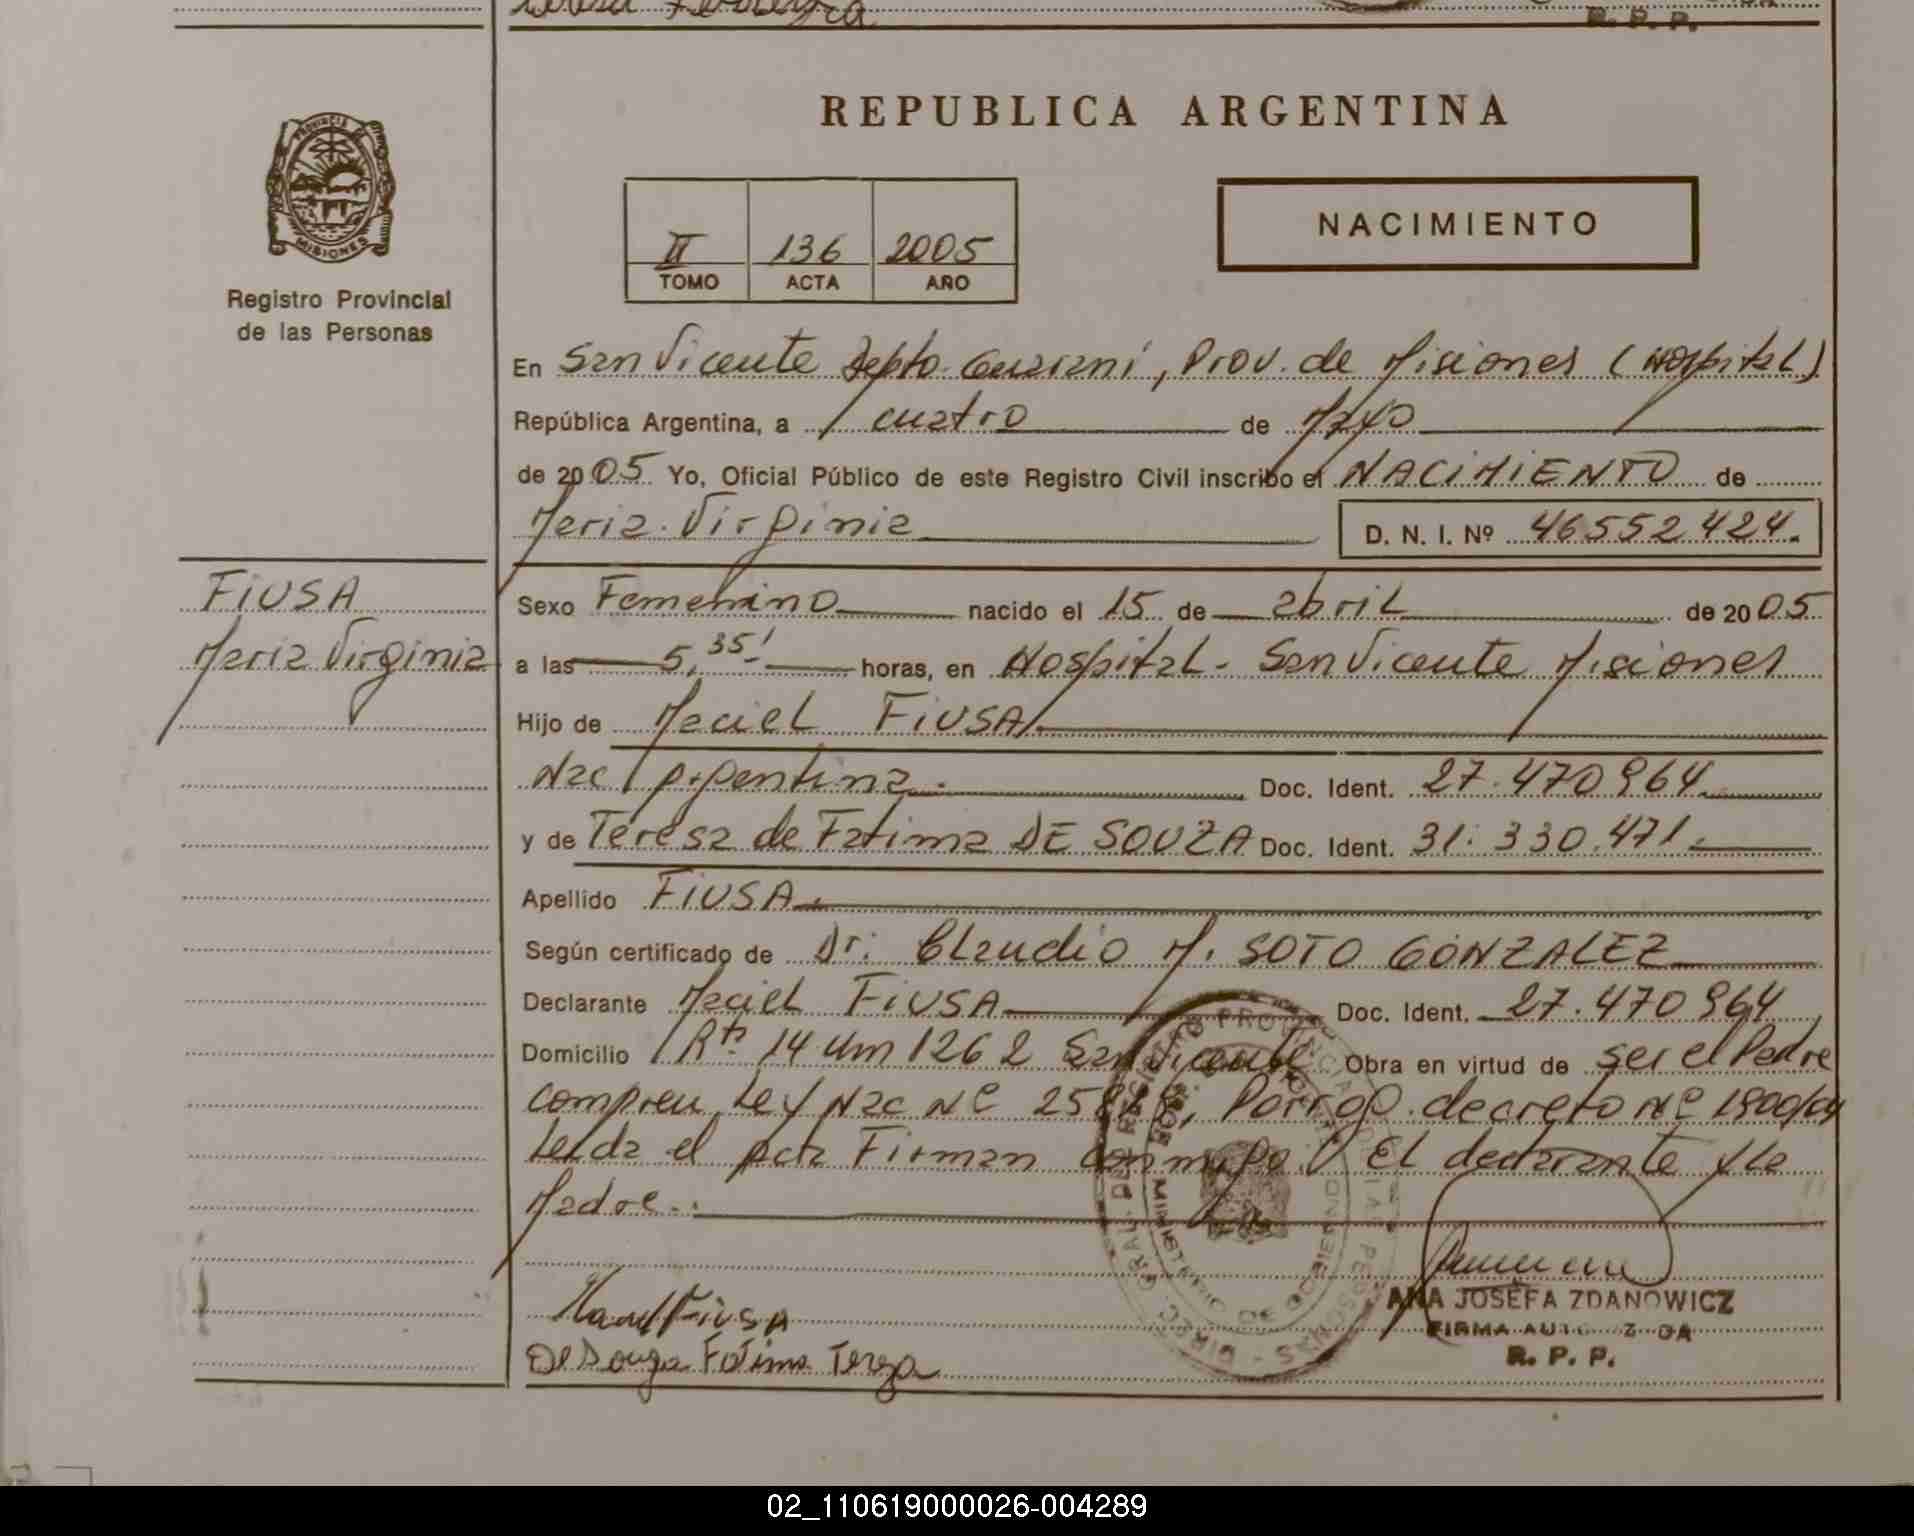 R. P. P.
PROVINCIA
MISIONES
Registro Provincial
de las Personas
REPUBLICA ARGENTINA
II 136 2005
TOMO ACTA AÑO
NACIMIENTO
En San Vicente Depto. Guarani, Prov. de Misiones (Hospital)
República Argentina, a cuatro de Mayo
de 2005 Yo, Oficial Público de este Registro Civil inscribo el NACIMIENTO de
Maria Virginia D. N. I. Nº 46552424.
FIUSA
Maria Virginia
Sexo Femenino nacido el 15 de abril de 2005
a las 5,35' horas, en Hospital - San Vicente Misiones
Hijo de Maciel FIUSA
Nac Argentina. Doc. Ident. 27.470964
y de Teresa de Fatima DE SOUZA Doc. Ident. 31.330.471.
Apellido FIUSA.
Según certificado de Dr. Claudio M. SOTO GONZALEZ
Declarante Maciel FIUSA Doc. Ident. 27.470964
Domicilio Rta. 14 Km 1262 San Vicente Obra en virtud de ser el Padre
Ley Nac Nº decreto Nº
Leida el Acta Firman conmigo El declarante y la
Madre.
FIUSA
De Souza Fatima Tereza
ANA JOSEFA ZDANOWICZ
FIRMA AUTORIZADA
R. P. P.
02_110619000026-004289